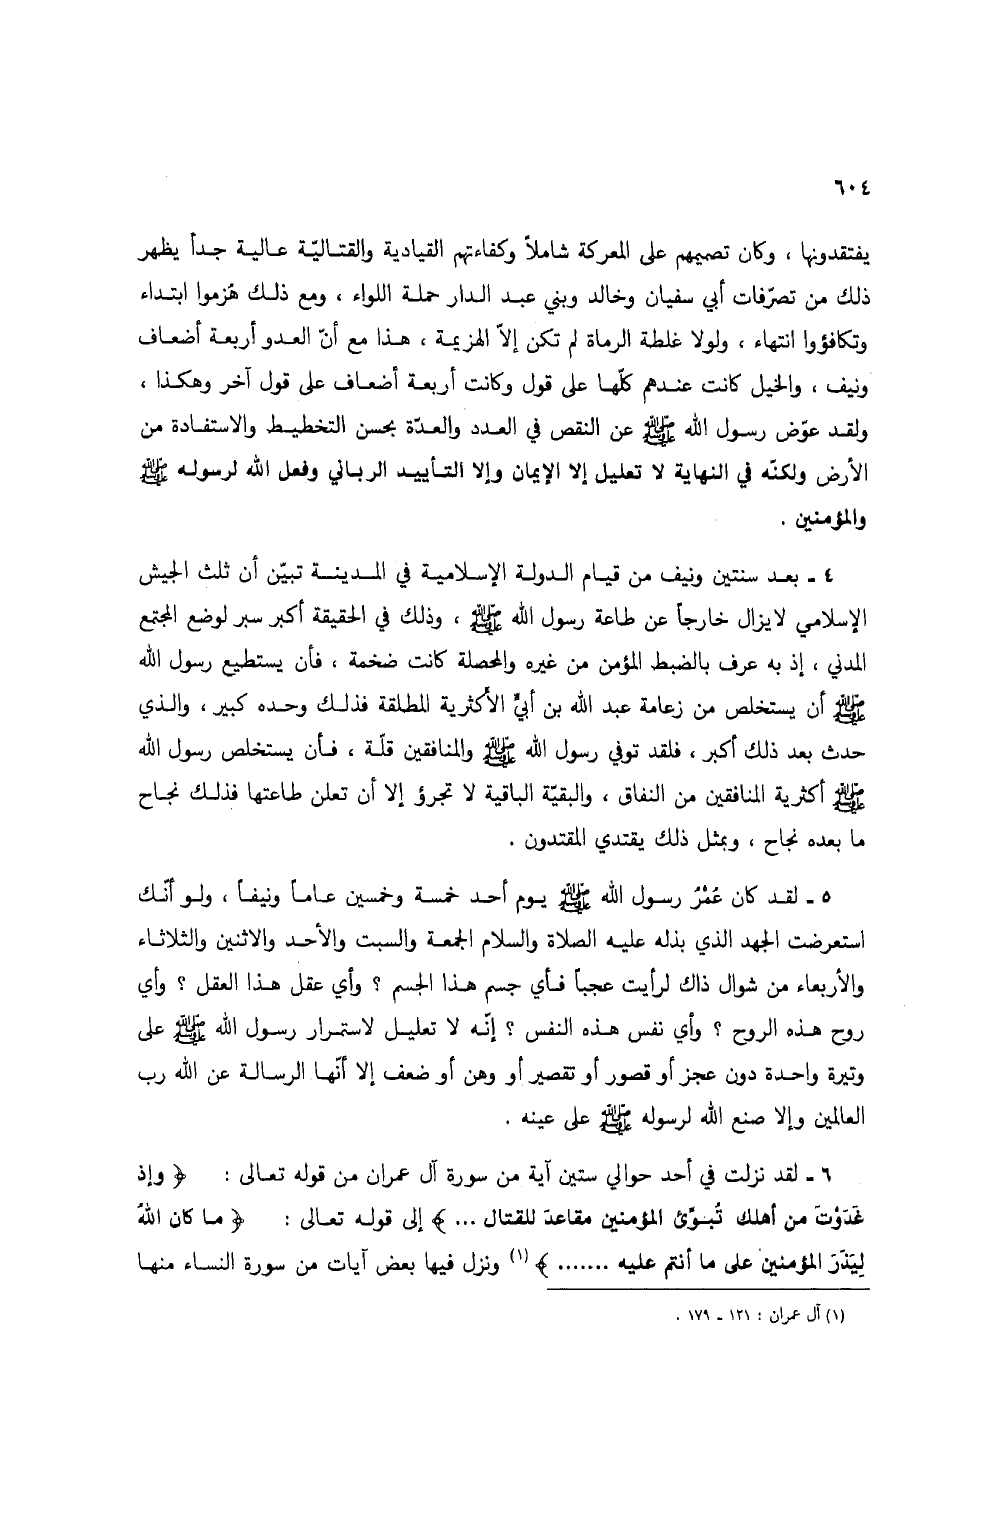 ٦٠٤
يفتقدونها ، وكان تصميمهم على المعركة شاملاً وكفاءتهم القيادية والقتاليّة عالية جداً يظهر
ذلك من تصرّفات أبي سفيان وخالد وبني عبد الدار حملة اللواء ، ومع ذلك هُزموا ابتداء
وتكافؤوا انتهاء ، ولولا غلطة الرماة لم تكن إلاّ الهزيمة ، هذا مع أنّ العدو أربعة أضعاف
ونيف ، والخيل كانت عندهم كلّها على قول وكانت أربعة أضعاف على قول آخر وهكذا ،
ولقد عوّض رسول الله ﷺ عن النقص في العدد والعدّة بحسن التخطيط والاستفادة من
الأرض ولكنّه في النهاية لا تعليل إلا الإيمان وإلا التأييد الرباني وفعل الله لرسوله ﷺ
والمؤمنين .
٤ ـ بعد سنتين ونيف من قيام الدولة الإسلامية في المدينة تبيّن أن ثلث الجيش
الإسلامي لايزال خارجاً عن طاعة رسول الله ﷺ ، وذلك في الحقيقة أكبر سبر لوضع المجتمع
المدني ، إذ به عرف بالضبط المؤمن من غيره والمحصلة كانت ضخمة ، فأن يستطيع رسول الله
ﷺ أن يستخلص من زعامة عبد الله بن أبيّ الأكثرية المطلقة فذلك وحده كبير ، والذي
حدث بعد ذلك أكبر ، فلقد توفي رسول الله ﷺ والمنافقين قلّة ، فأن يستخلص رسول الله
ﷺ أكثرية المنافقين من النفاق ، والبقيّة الباقية لا تجرؤ إلا أن تعلن طاعتها فذلك نجاح
ما بعده نجاح ، وبمثل ذلك يقتدي المقتدون .
٥ ـ لقد كان عُمْرُ رسول الله ﷺ يوم أحد خمسة وخمسين عاماً ونيفاً ، ولو أنّك
استعرضت الجهد الذي بذله عليه الصلاة والسلام الجمعة والسبت والأحد والاثنين والثلاثاء
والأربعاء من شوال ذاك لرأيت عجباً فأي جسم هذا الجسم ؟ وأي عقل هذا العقل ؟ وأي
روح هذه الروح ؟ وأي نفس هذه النفس ؟ إنّه لا تعليل لاستمرار رسول الله ﷺ على
وتيرة واحدة دون عجز أو قصور أو تقصير أو وهن أو ضعف إلا أنّها الرسالة عن الله رب
العالمين وإلا صنع الله لرسوله ﷺ على عينه .
٦ ـ لقد نزلت في أحد حوالي ستين آية من سورة آل عمران من قوله تعالى : ﴿ وإذ
غَدَوْتَ من أهلك تُبوِّئ المؤمنين مقاعدَ للقتال ... ﴾ إلى قوله تعالى : ﴿ ما كان اللهُ
لِيَذَرَ المؤمنين على ما أنتم عليه ....... ﴾ (١) ونزل فيها بعض آيات من سورة النساء منها
(١) آل عمران : ١٢١ ـ ١٧٩ .